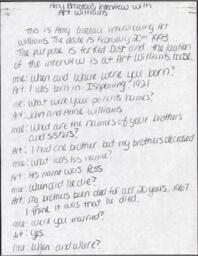 Amy Bureau's interview with
Art Williams
This is Amy Bureau interviewing Art
Williams. The date is February 20th 1993
The purpose is for Red Dust and the location
of the interview is at Art Williams house.
me: when and where were you born?
Art: I was born in Ishpeming, 1921
me: what were your parents names?
Art: John and Annie Williams
me: What are the names of your brothers
and sisters?
Art: I had one brother but my brothers deceased
me: what was his name?
Art: His name was Ross
me: when did he die?
Art: my brother's been dead for over 20 years. 1967
I think it was that he died.
me: were you married?
Art: yes.
me: When and where?